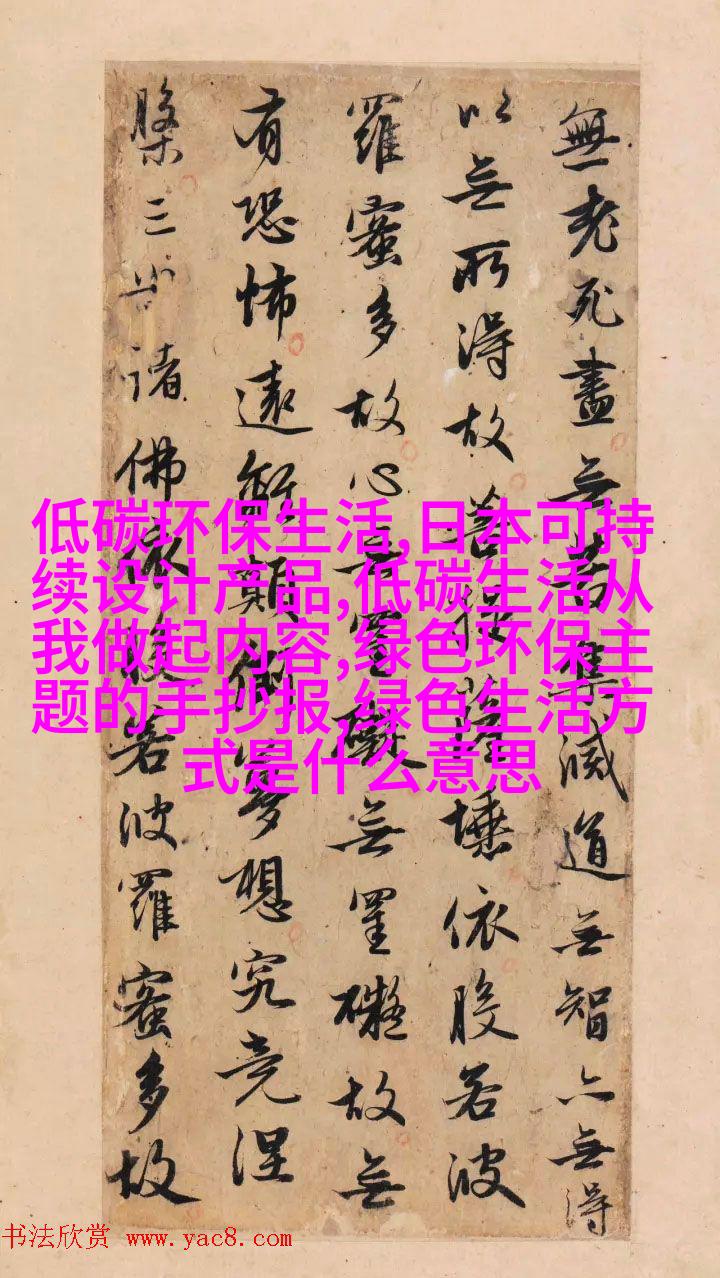 無老死盡无苦集滅道无智亦无得
以无所得故菩提薩埵依般若波
羅蜜多故心无罣礙无罣礙故无
有恐怖遠離顛倒夢想究竟涅
槃三世諸佛依般若波羅蜜多故
低碳环保生活,日本可持
续设计产品,低碳生活从
我做起内容,绿色环保主
题的手抄报,绿色生活方
式是什么意思
书法欣赏 www.yac8.com